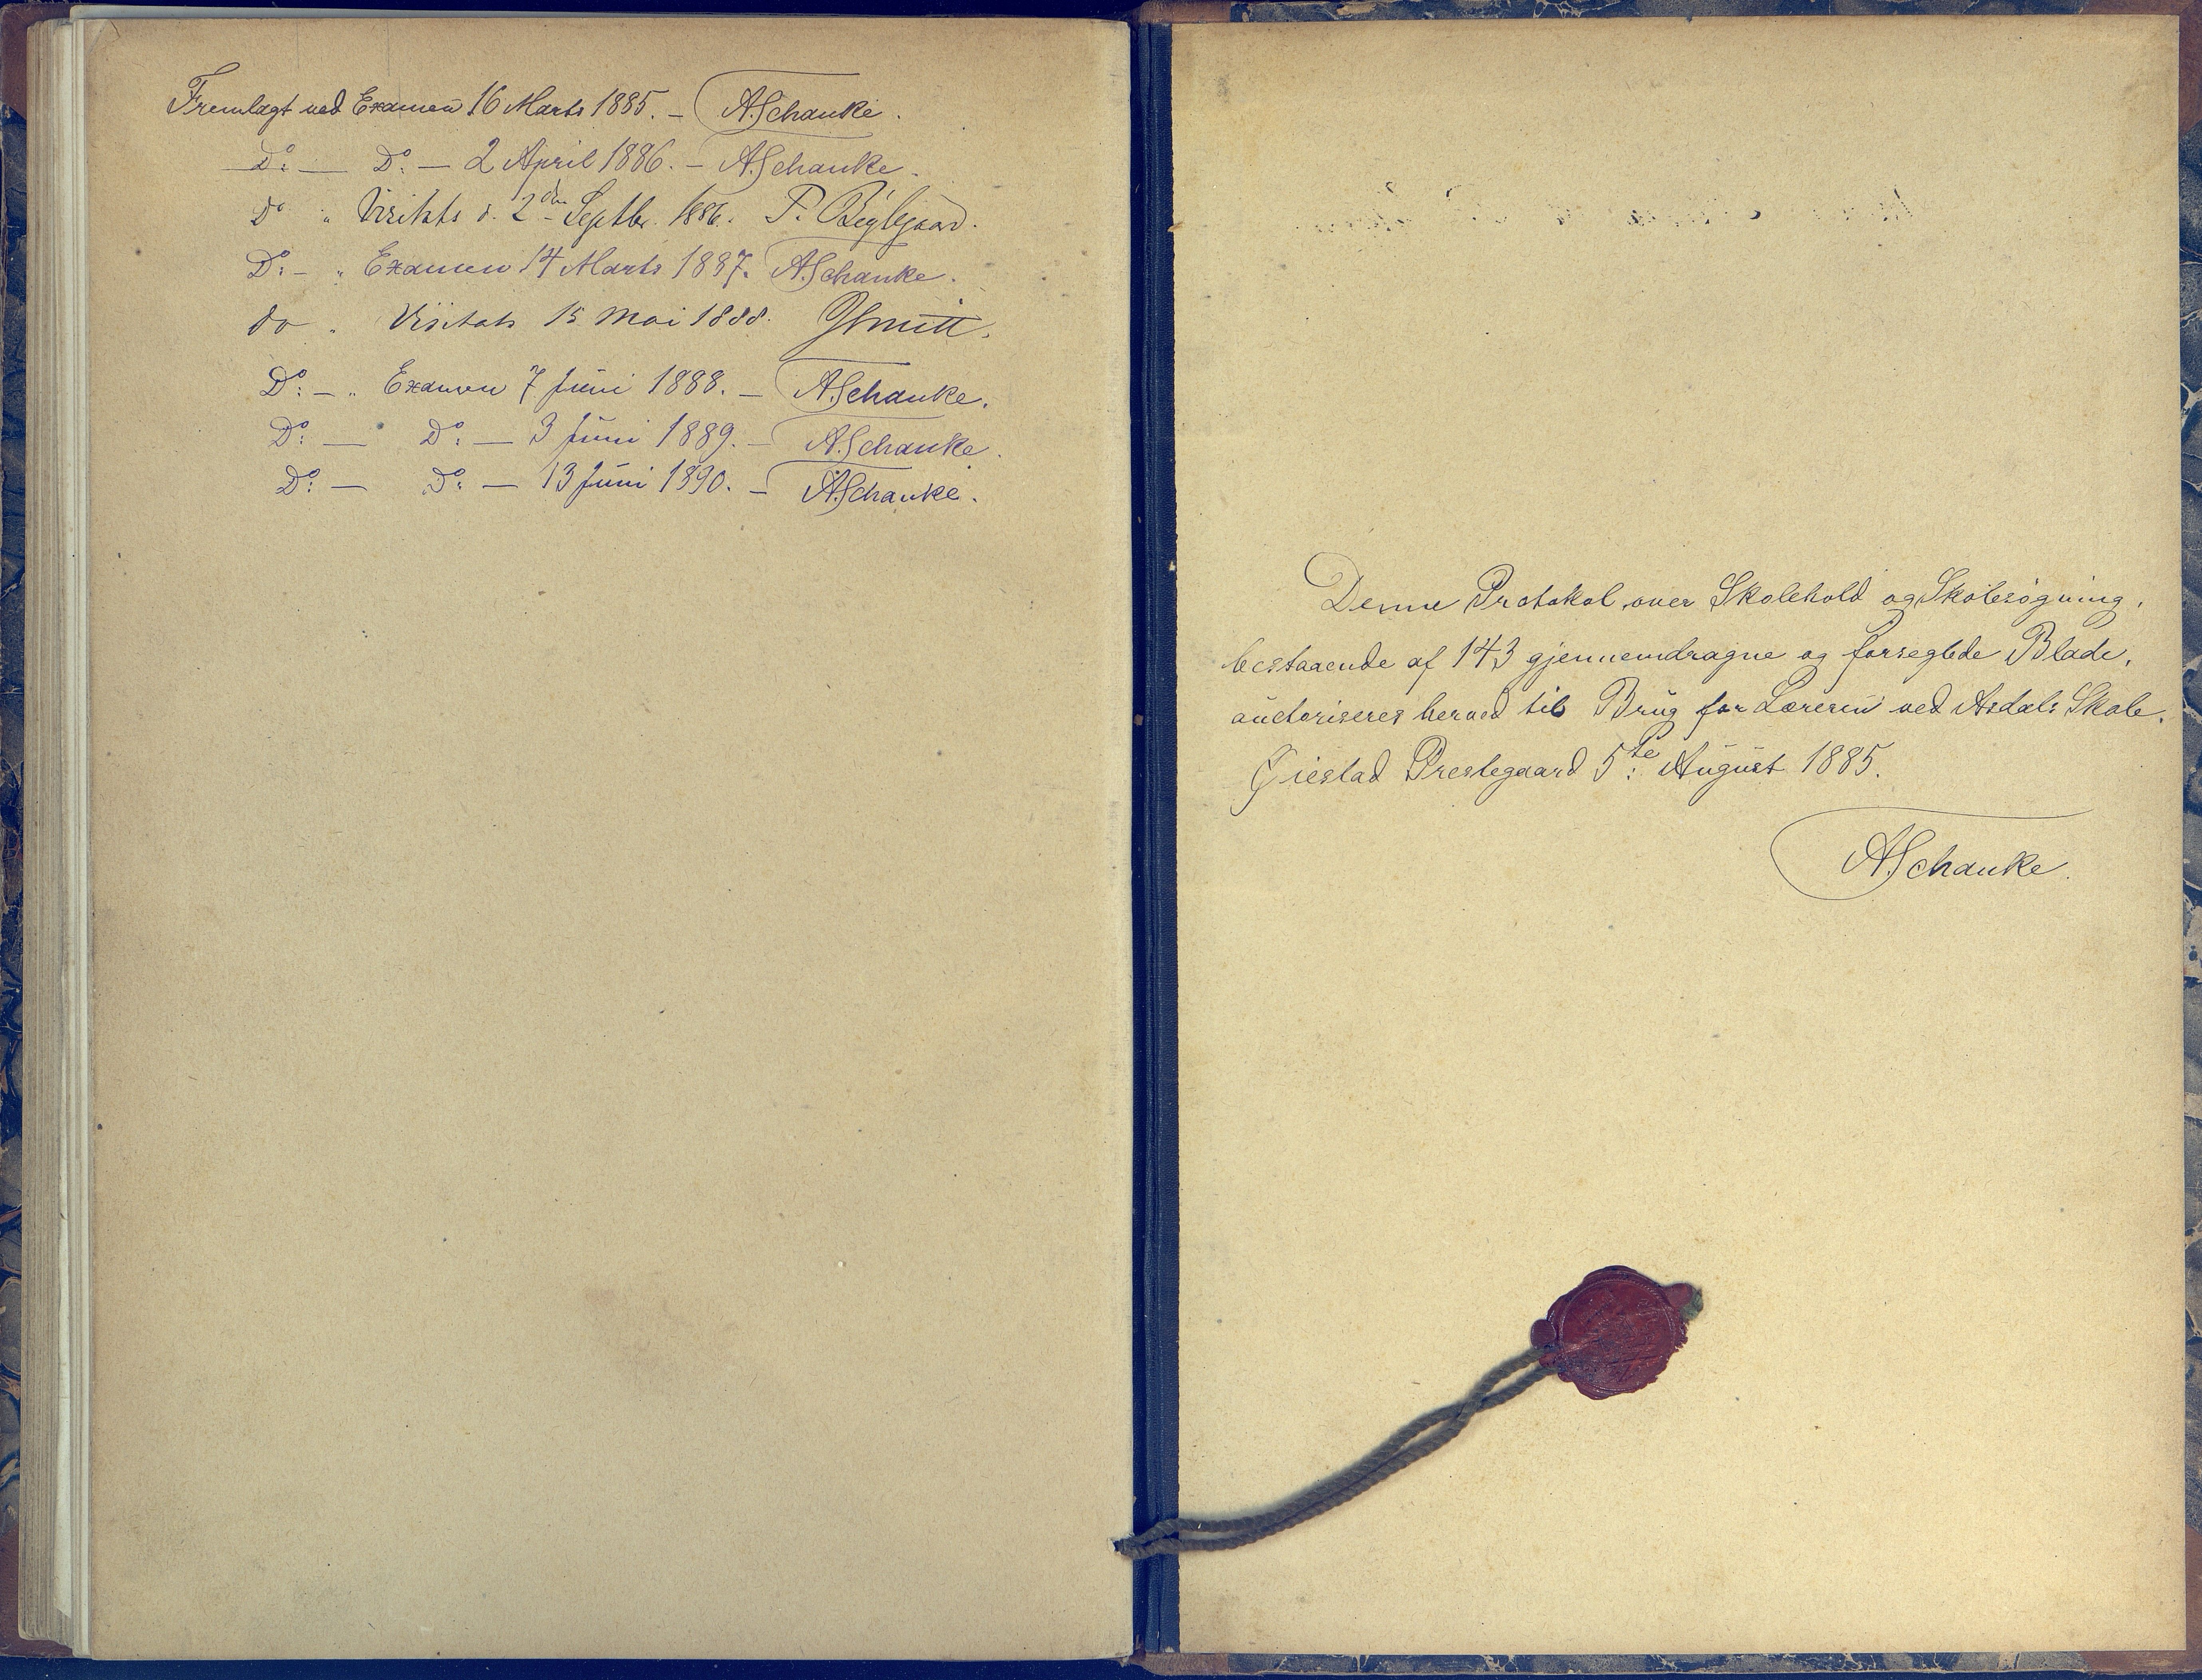 Fremlagt ved Examen 16 Marts 1885. – ASchanke.
Do: – Do: – 2 April 1886. – ASchanke.
do " Visitats d. 2den Septbr. 1886. P.
Do: – " Examen 14 Marts 1887. ASchanke.
do " Visitats 15 Mai 1888.
Do: – " Examen 7 Juni 1888. – ASchanke.
Do: – Do: – 3 Juni 1889. – ASchanke.
Do: – Do: – 13 Juni 1890. – ASchanke.
Denne Protokol over Skolehold og Skolesøgning,
bestaaende af 143 gjennemdragne og forseglede Blade,
auctoriseres herved til Brug for Læreren ved Asdals Skole.
Øiestad Prestegaard 5te: August 1885.
ASchanke.